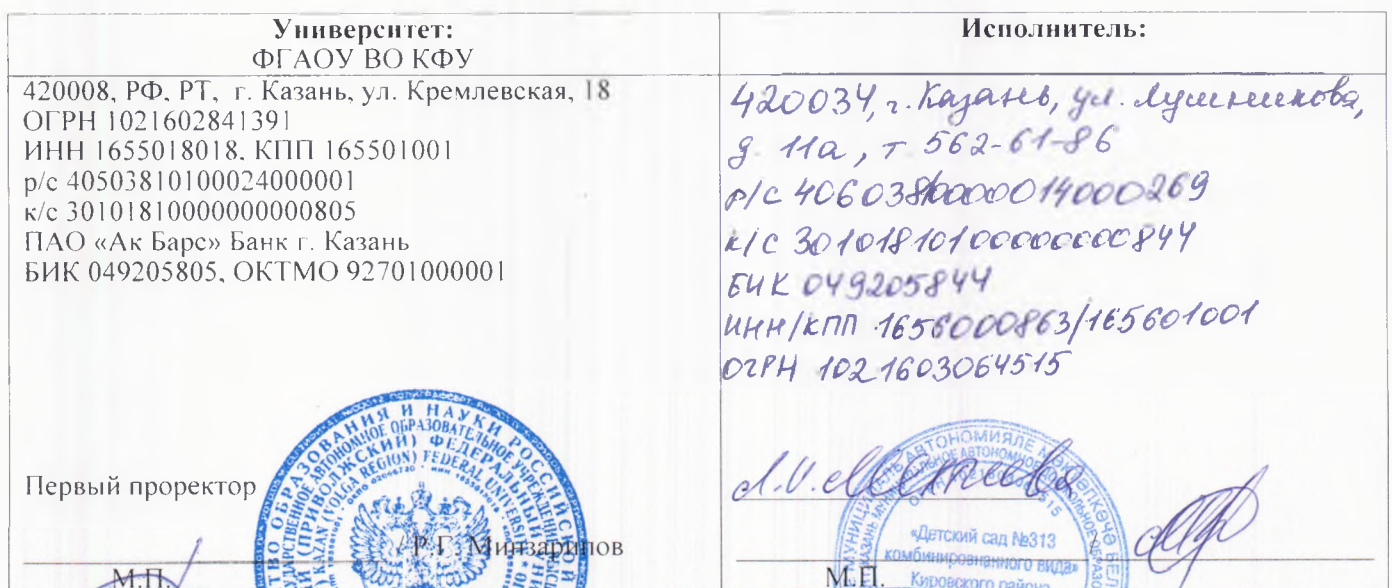 Университет:
ФГАОУ ВО КФУ
420008, РФ, РТ, г. Казань, ул. Кремлевская, 18
ОГРН 1021602841391
ИНН 1655018018, КПП 165501001
р/с 40503810100024000001
к/с 30101810000000000805
ПАО «Ак Барс» Банк г. Казань
БИК 049205805, ОКТМО 92701000001
Первый проректор
/ Р.Г. Минзарипов
М.П.
Исполнитель:
420034, г. Казань, ул. Лушникова,
д. 11а, т 562-61-86
р/с 40603810000014000269
к/с 30101810100000000844
БИК 049205844
ИНН/КПП 1656000863/165601001
ОГРН 1021603064515
Л.И.
/
«Детский сад №313
комбинированного вида»
Кировского района
М.П.